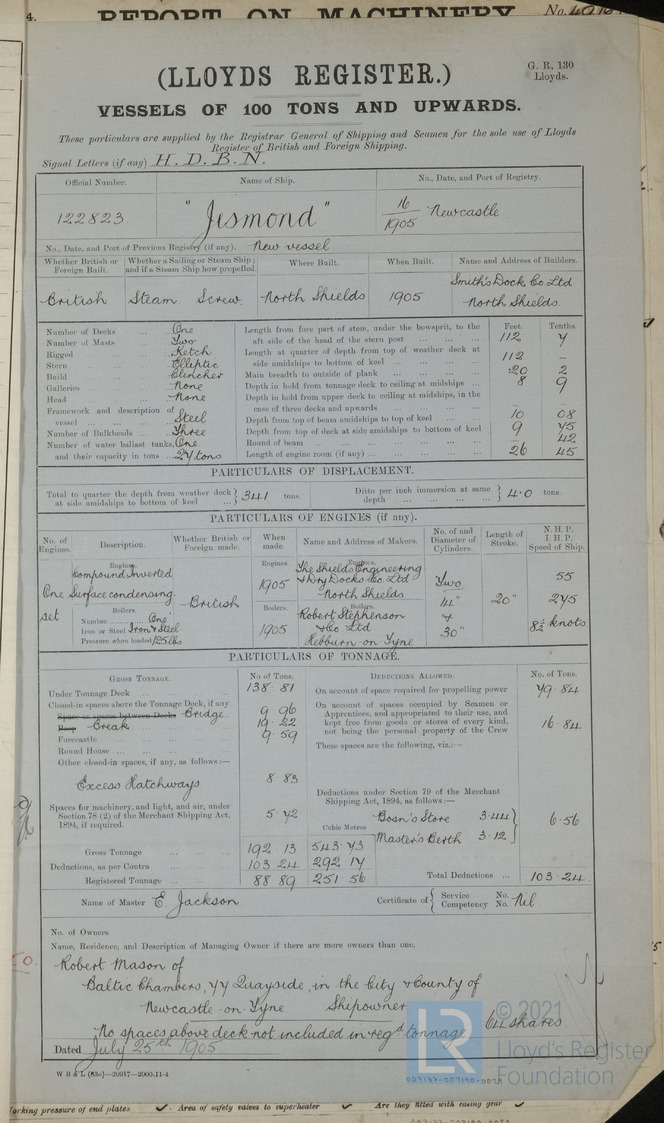 4.
REPORT ON MACHINERY
No.
(LLOYDS REGISTER.)
G. R. 130
Lloyds.
VESSELS OF 100 TONS AND UPWARDS.
These particulars are supplied by the Registrar General of Shipping and Seamen for the sole use of Lloyds
Register of British and Foreign Shipping.
Signal Letters (if any) H.D.B.N.
Official Number. Name of Ship. No., Date, and Port of Registry.
122823 "Jesmond" 16/1905 Newcastle
No., Date, and Port of Previous Registry (if any). New vessel
Whether British or Foreign Built. Whether a Sailing or Steam Ship; and if a Steam Ship how propelled. Where Built. When Built. Name and Address of Builders.
British Steam Screw North Shields 1905 Smith's Dock Co. Ltd North Shields
Feet. Tenths.
Number of Decks ... One
Number of Masts ... Two
Rigged ... Ketch
Stern ... Elliptic
Build ... Clincher
Galleries ... None
Head ... None
Framework and description of vessel ... Steel
Number of Bulkheads ... Three
Number of water ballast tanks, One
and their capacity in tons ... 27 tons
Length from fore part of stem, under the bowsprit, to the aft side of the head of the stern post ... 112 7
Length at quarter of depth from top of weather deck at side amidships to bottom of keel ... 112 –
Main breadth to outside of plank ... 20 2
Depth in hold from tonnage deck to ceiling at midships ... 8 9
Depth in hold from upper deck to ceiling at midships, in the case of three decks and upwards ...
Depth from top of beam amidships to top of keel ... 10 08
Depth from top of deck at side amidships to bottom of keel ... 9 75
Round of beam ... – 42
Length of engine room (if any) ... 26 45
PARTICULARS OF DISPLACEMENT.
Total to quarter the depth from weather deck at side amidships to bottom of keel ... } 341 tons. Ditto per inch immersion at same depth ... } 4.0 tons.
PARTICULARS OF ENGINES (if any).
No. of Engines. Description. Whether British or Foreign made. When made. Name and Address of Makers. No. of and Diameter of Cylinders. Length of Stroke. N. H. P. I. H. P. Speed of Ship.
Engines. Engines. Engines.
One set Compound Inverted Surface condensing. British 1905 The Shields Engineering & Dry Docks Co. Ltd North Shields Two 14" & 30" 20" 55 275 8½ knots
Boilers. Boilers. Boilers.
Number One
Iron or Steel Iron & Steel
Pressure when loaded 125 lbs
1905 Robert Stephenson & Co Ltd Hebburn on Tyne
PARTICULARS OF TONNAGE.
GROSS TONNAGE. No of Tons.
Under Tonnage Deck ... 138 . 81
Closed-in spaces above the Tonnage Deck, if any
Space or spaces between Decks Bridge 9 96
Poop Break 19 22
Forecastle 9 . 59
Round House ...
Other closed-in spaces, if any, as follows:—
Excess Hatchways 8 . 83
Spaces for machinery, and light, and air, under Section 78 (2) of the Merchant Shipping Act, 1894, if required. 5 . 72
Cubic Metres
Gross Tonnage ... 192 . 13 543 . 73
Deductions, as per Contra ... 103 . 24 292 . 17
Registered Tonnage ... 88 89 251 56
DEDUCTIONS ALLOWED. No. of Tons.
On account of space required for propelling power 79 . 84
On account of spaces occupied by Seamen or Apprentices, and appropriated to their use, and kept free from goods or stores of every kind, not being the personal property of the Crew 16 . 84
These spaces are the following, viz.:—
Deductions under Section 79 of the Merchant Shipping Act, 1894, as follows:—
Bosn's Store 3.44
Master's Berth 3.12
6 . 56
Total Deductions ... 103 . 24
Name of Master E. Jackson
Certificate of { Service No. Competency No. Nil
No. of Owners
Name, Residence, and Description of Managing Owner if there are more owners than one.
Robert Mason of
Baltic Chambers, 77 Quayside, in the City & County of
Newcastle on Tyne Shipowner
64 shares
No spaces above deck not included in regd tonnage
Dated July 25th 1905
LR
© 2021
Lloyd's Register
Foundation
working pressure of end plates Area of safety valves to superheater Are they fitted with easing gear